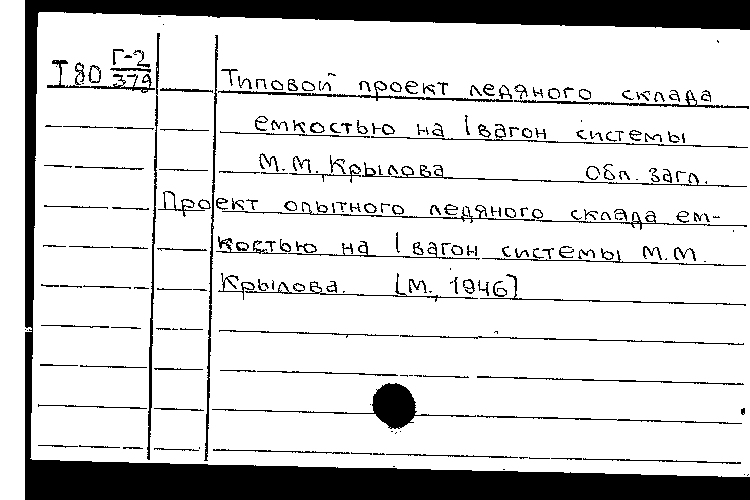 Т80 Г-2/379
Типовой проект ледяного склада
емкостью на 1 вагон системы
М.М. Крылова Обл. загл.
Проект опытного ледяного склада ем-
костью на 1 вагон системы М.М.
Крылова. [М., 1946]